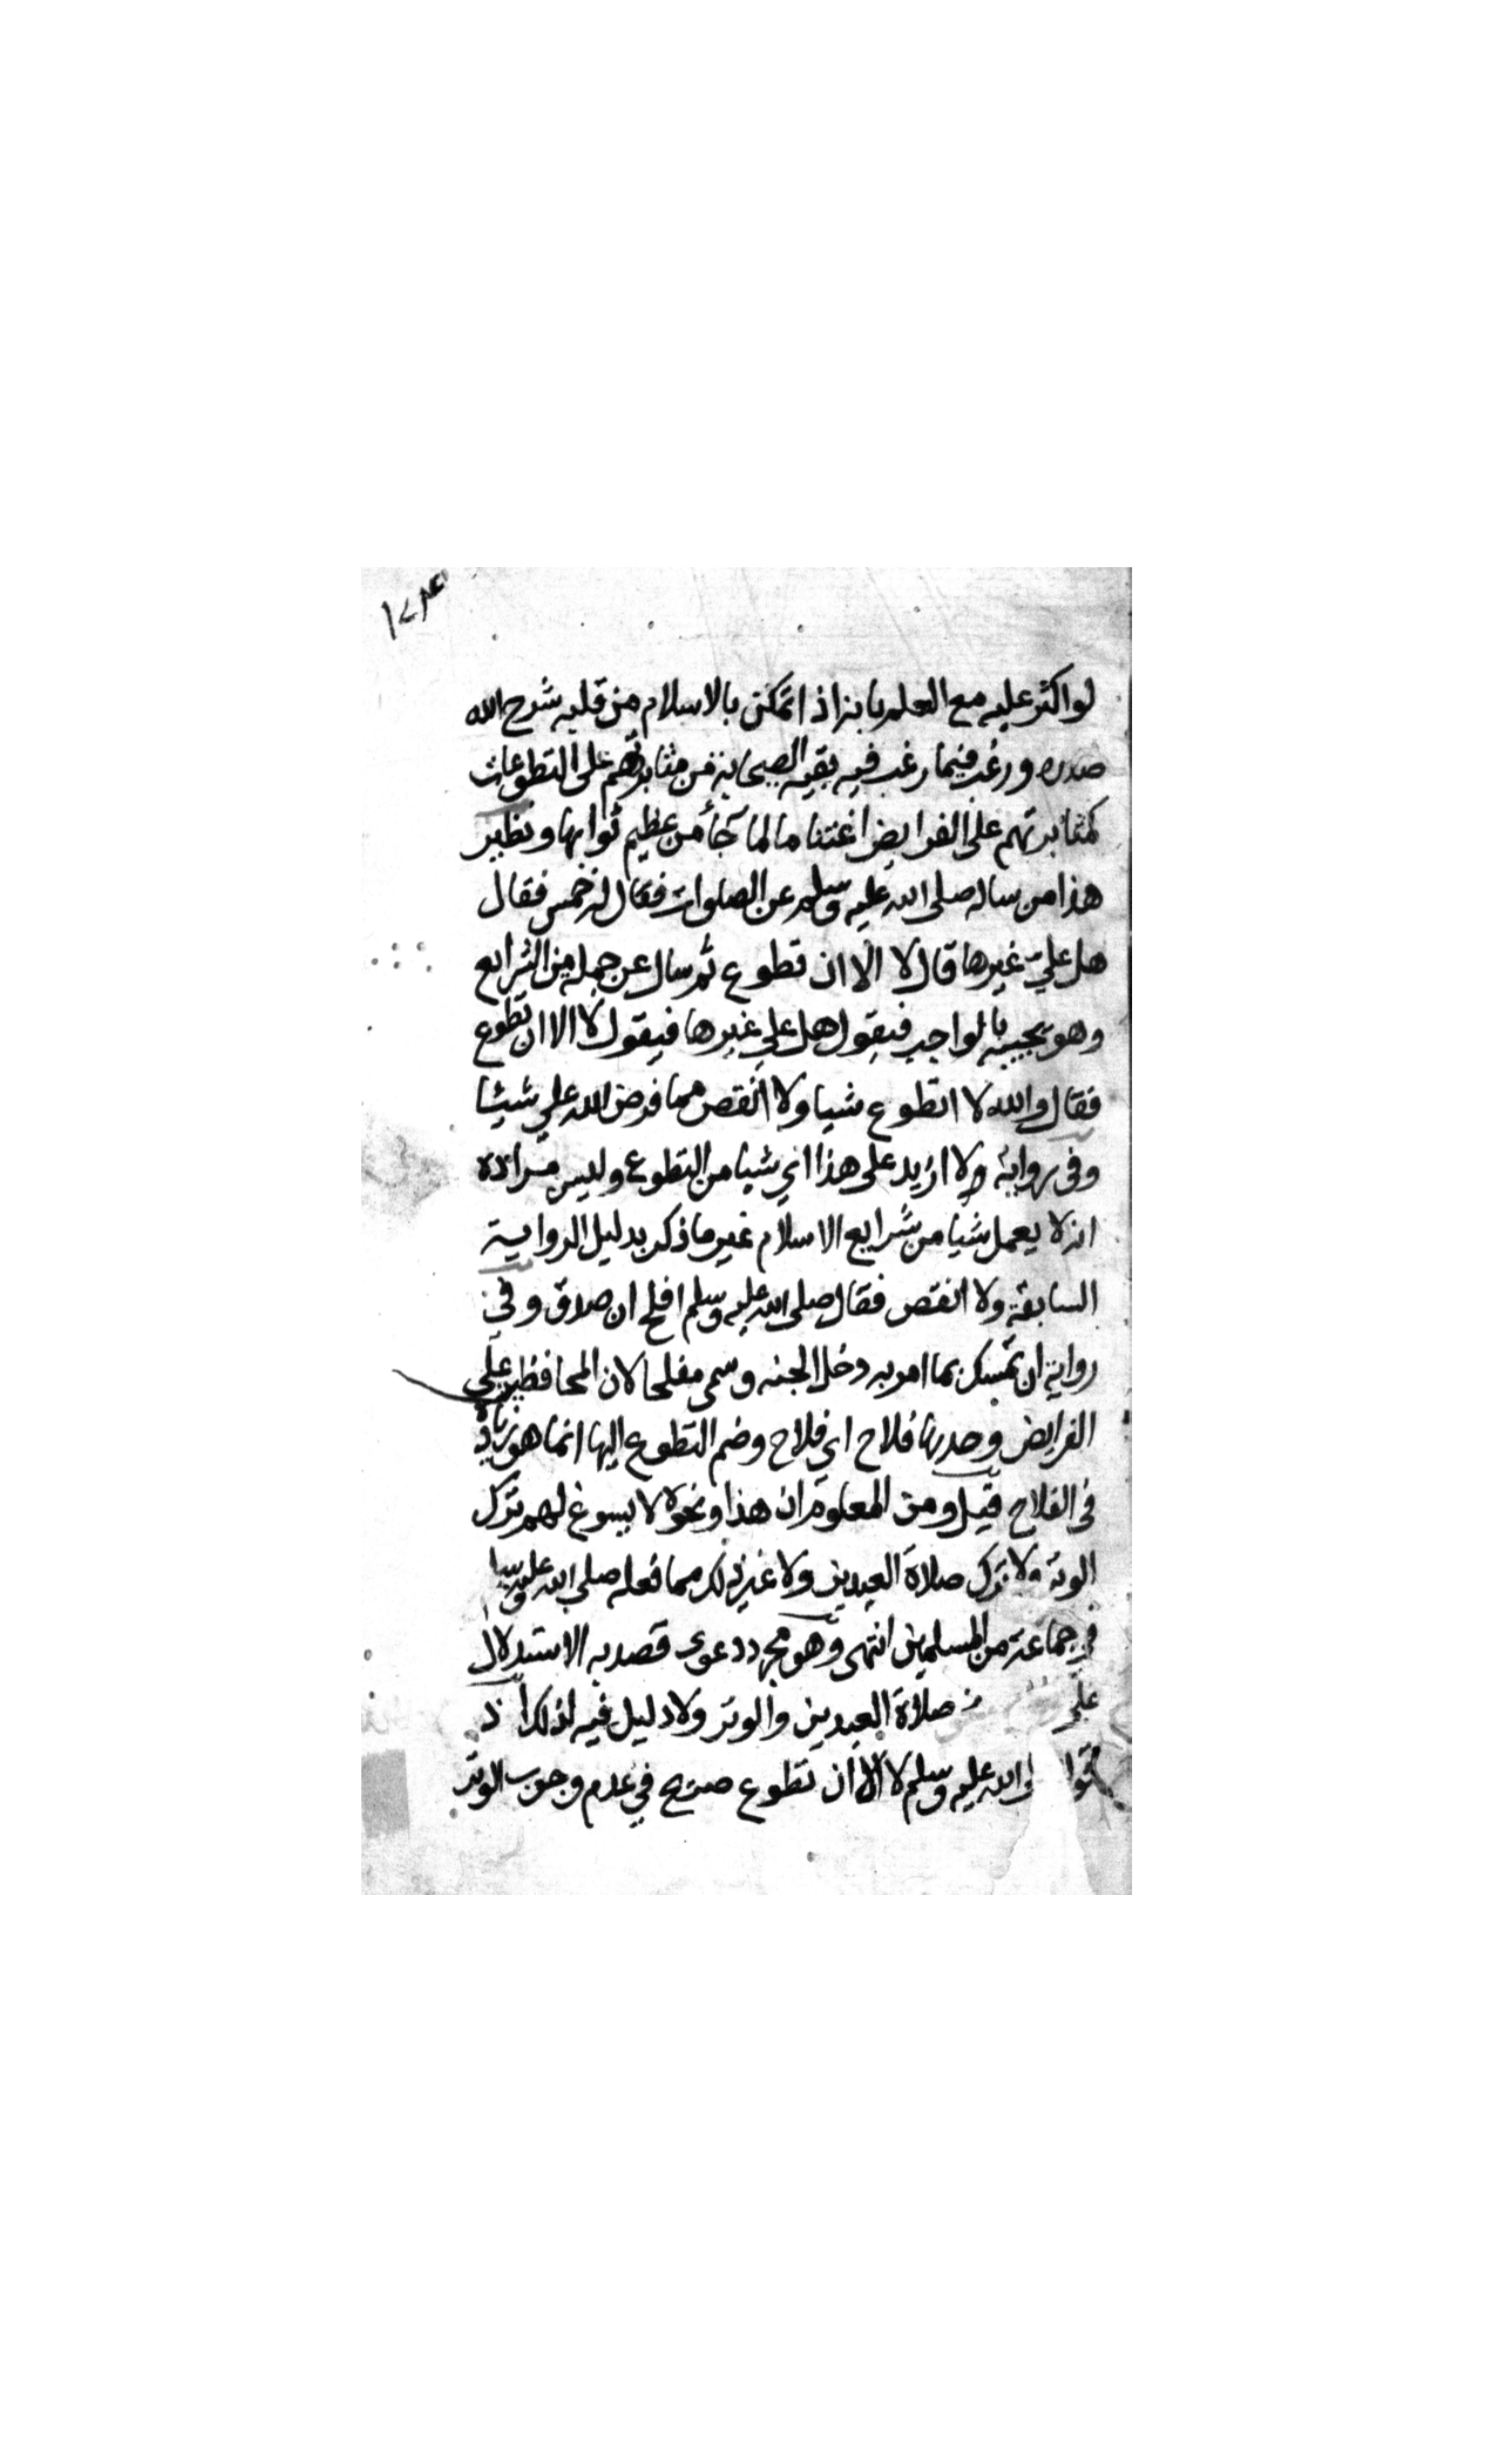 لو اكثر عليه مع العلم بانه اذا تمكن بالاسلام من قلبه شرح الله
صدره ورغب فيما رغب فيه بقيه الصحابه من مثابرتهم على التطوعات
كمثابرتهم على الفرايض اغتناما لما جآ من عظيم ثوابها ونظير
هذا من ساله صلى الله عليه وسلم عن الصلوات فقال له خمس فقال
هل علي غيرها قال لا الا ان تطوع ثم سال عن جمله من الشرايع
وهو يجيبه بالواجب فيقول هل علي غيرها فيقول لا الا ان تطوع
فقال والله لا اتطوع شيا ولا انقص مما فرض الله علي شيئا
وفى رواية ولا ازيد على هذا اي شيا من التطوع وليس مراده
انه لا يعمل شيا من شرايع الاسلام غير ما ذكر بدليل الرواية
السابقة ولا انقص فقال صلى الله عليه وسلم افلح ان صدق وفي
رواية ان تمسك بما امر به دخل الجنه وسمى مفلحا لان المحافظة على
الفرايض وحدها فلاح اي فلاح وضم التطوع اليها انما هو زيادة
فى الفلاح قيل ومن المعلوم ان هذا ونحوه لا يسوغ لهم ترك
الوتر ولا ترك صلاة العيدين ولا غير ذلك مما فعله صلى الله عليه وسلم
في جماعة من المسلمين انتهى وهو مجرد دعوى قصد به الاستدلال
على صلاة العيدين والوتر ولا دليل فيه لذلك اذ
الله عليه وسلم لا الا ان تطوع صريح في عدم وجوب الوتر